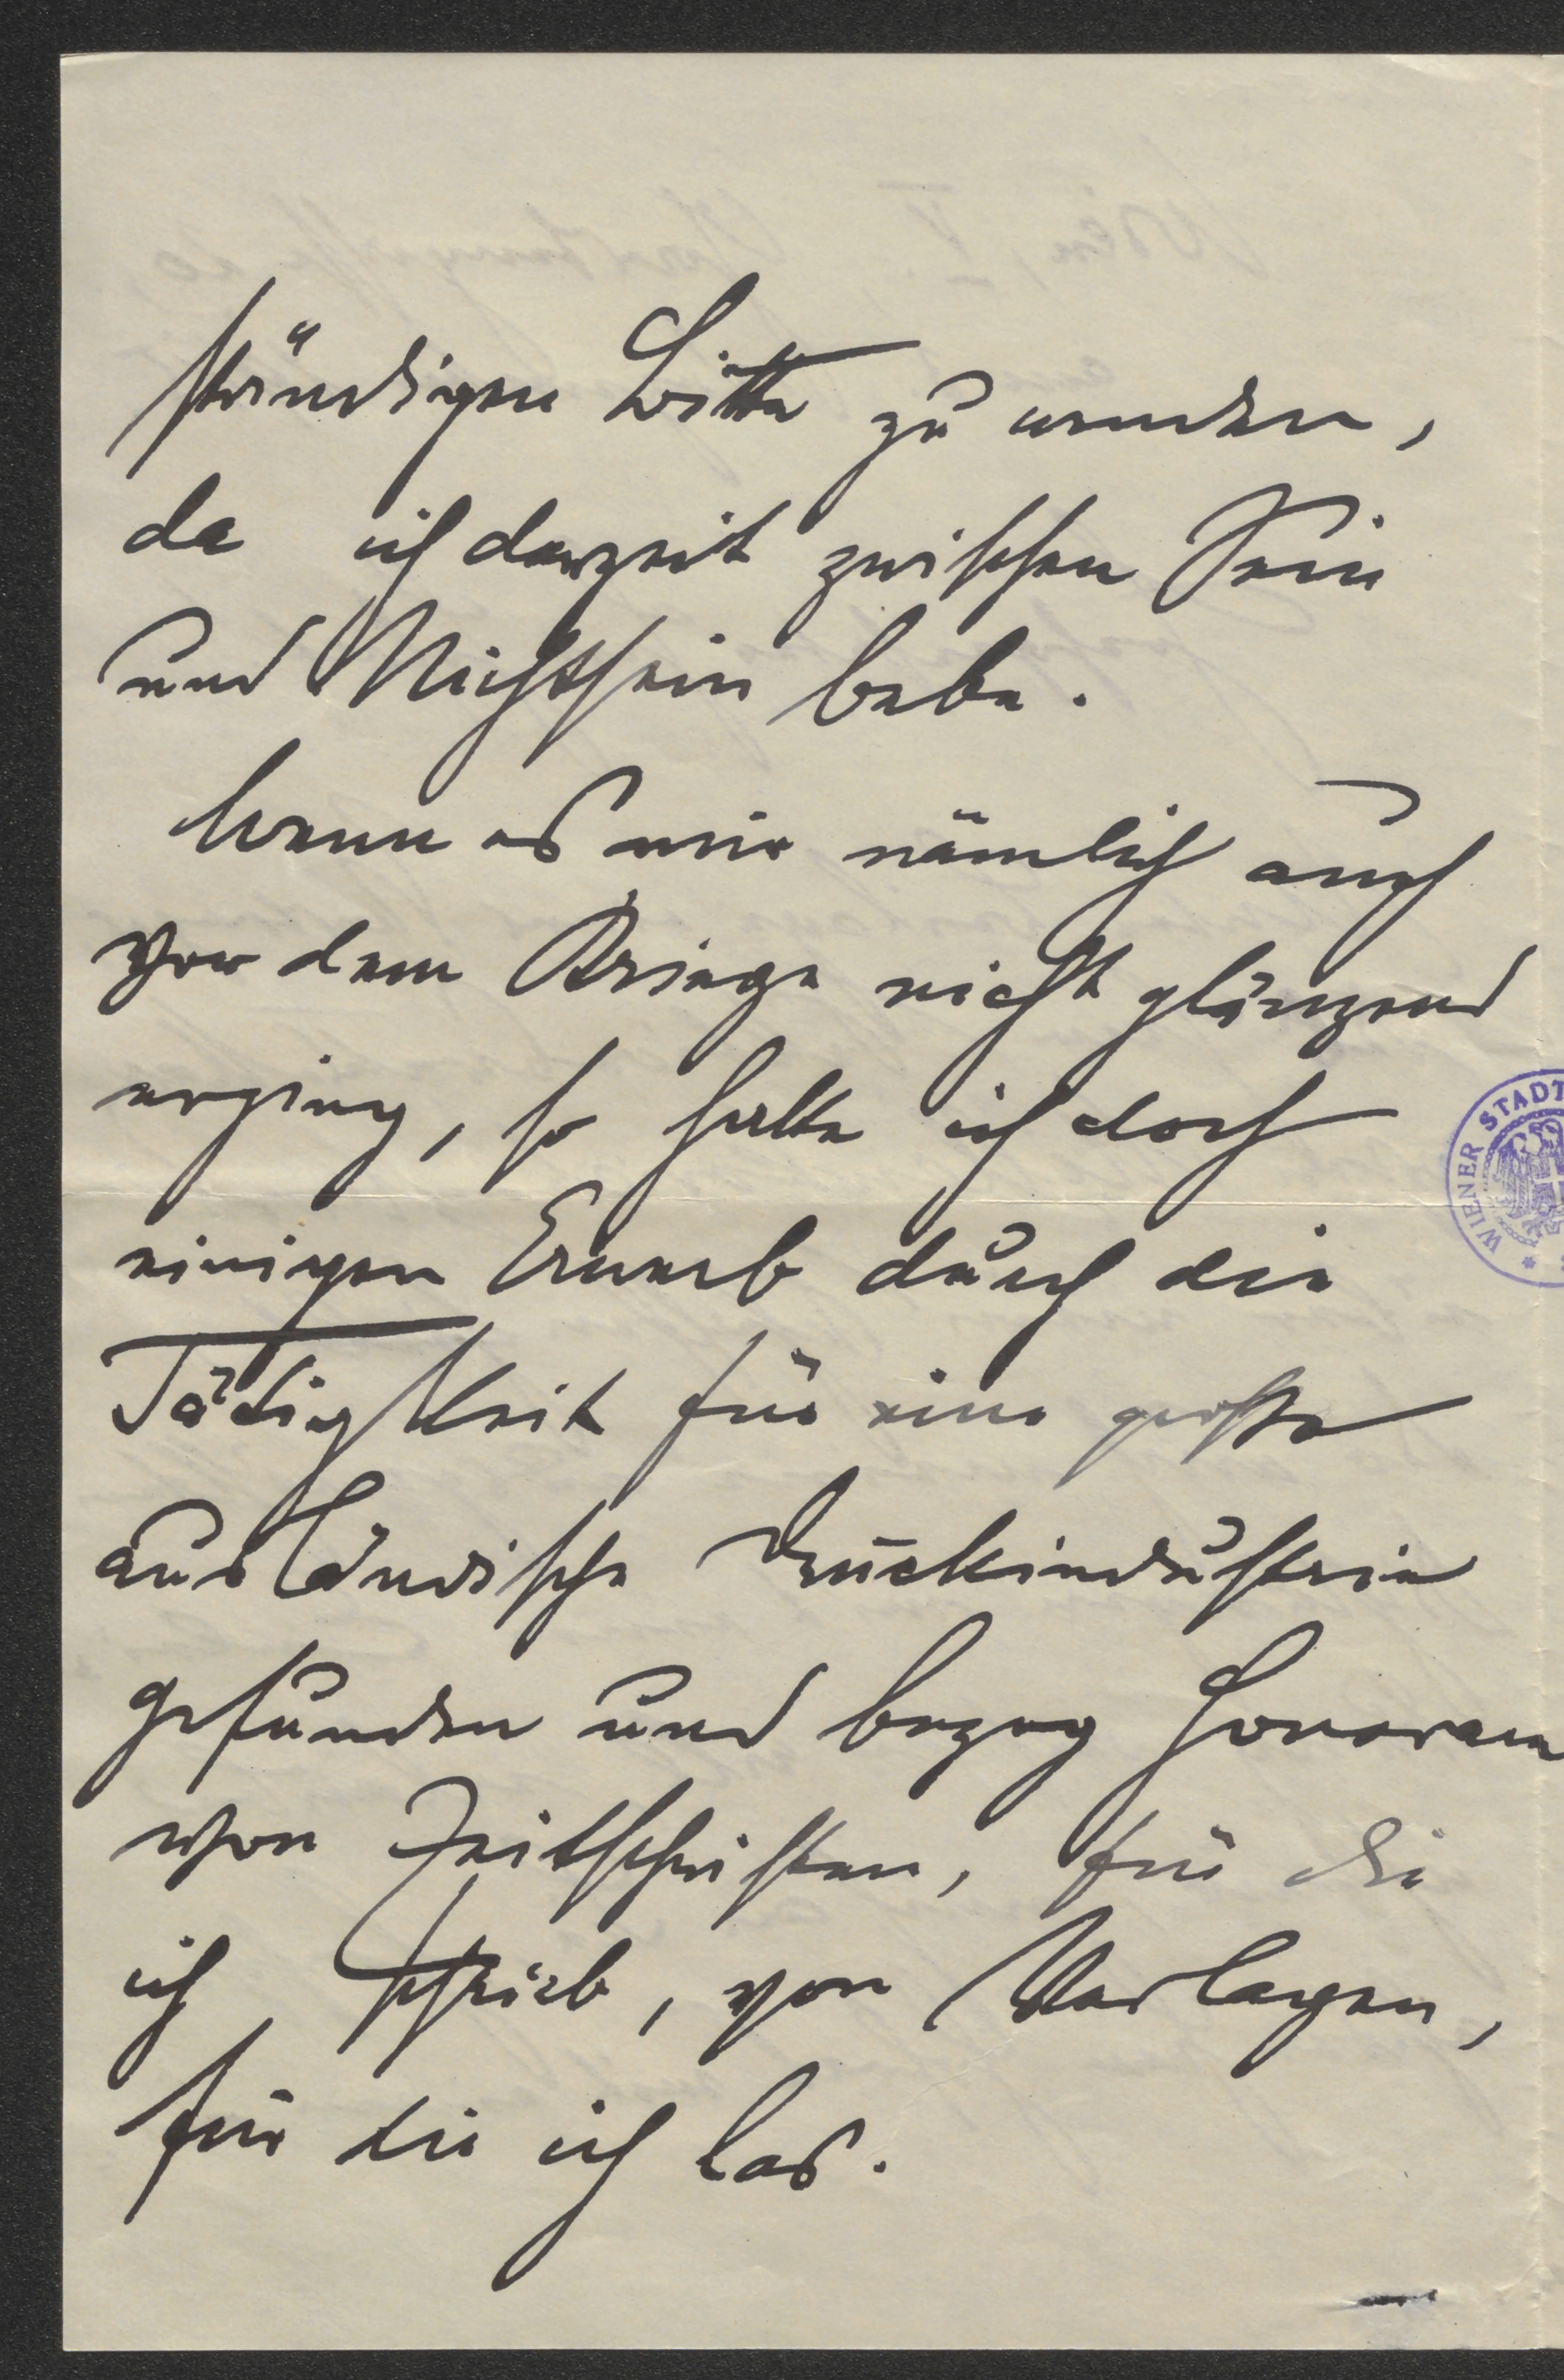 ständigen Bitte zu wenden,
da ich derzeit zwischen Sein
und Nichtsein bebe.
Wenn es mir nämlich auch
vor dem Kriege nicht glänzend
erging, so hatte ich doch
einigen Erwerb durch die
Tätigkeit für eine große
ausländische Druckindustrie
gefunden und bezog Honorare
von Zeitschriften, für die
ich schrieb, von Verlagen,
für die ich las.
WIENER STADT